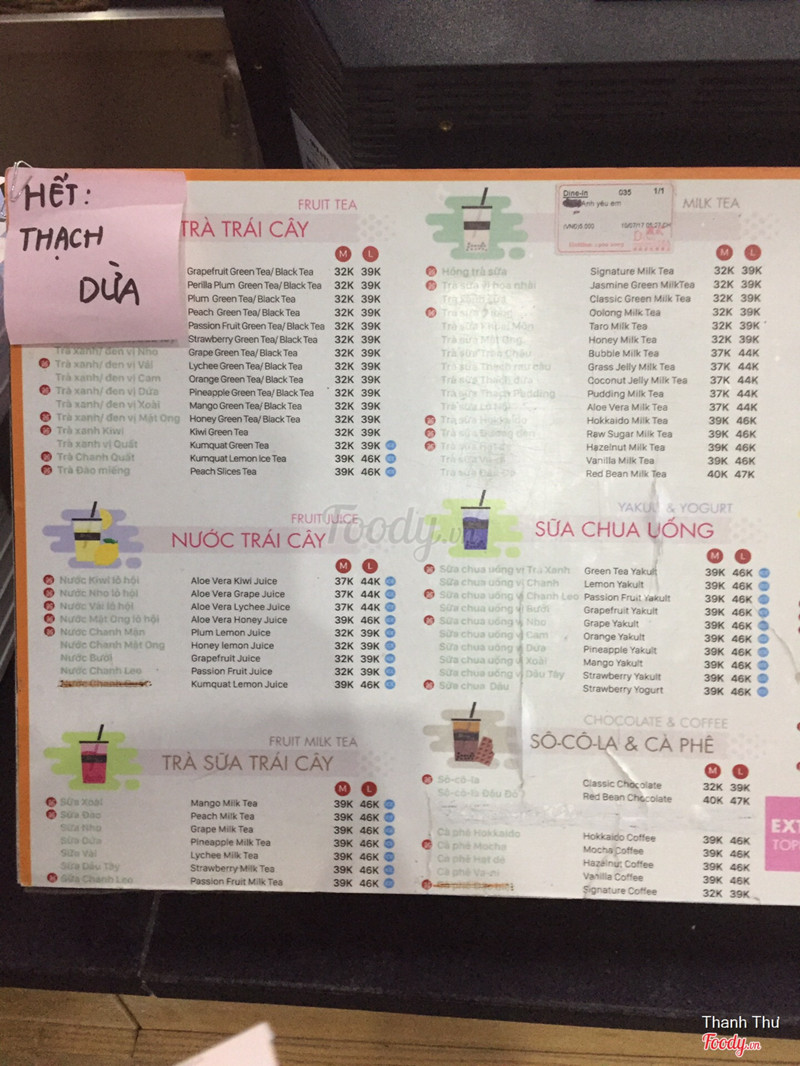 HẾT:
THẠCH
DỪA
FRUIT TEA
TRÀ TRÁI CÂY
M L
Grapefruit Green Tea/ Black Tea 32K 39K
Perilla Plum Green Tea/ Black Tea 32K 39K
Plum Green Tea/ Black Tea 32K 39K
Peach Green Tea/ Black Tea 32K 39K
Passion Fruit Green Tea/ Black Tea 32K 39K
Strawberry Green Tea/ Black Tea 32K 39K
Trà xanh/ đen vị Nho Grape Green Tea/ Black Tea 32K 39K
Trà xanh/ đen vị Vải Lychee Green Tea/ Black Tea 32K 39K
Trà xanh/ đen vị Cam Orange Green Tea/ Black Tea 32K 39K
Trà xanh/ đen vị Dứa Pineapple Green Tea/ Black Tea 32K 39K
Trà xanh/ đen vị Xoài Mango Green Tea/ Black Tea 32K 39K
Trà xanh/ đen vị Mật Ong Honey Green Tea/ Black Tea 32K 39K
Trà xanh Kiwi Kiwi Green Tea 32K 39K
Trà xanh vị Quất Kumquat Green Tea 32K 39K
Trà Chanh Quất Kumquat Lemon Ice Tea 39K 46K
Trà Đào miếng Peach Slices Tea 39K 46K
FRUIT JUICE
NƯỚC TRÁI CÂY
M L
Nước Kiwi lô hội Aloe Vera Kiwi Juice 37K 44K
Nước Nho lô hội Aloe Vera Grape Juice 37K 44K
Nước Vải lô hội Aloe Vera Lychee Juice 37K 44K
Nước Mật Ong lô hội Aloe Vera Honey Juice 39K 46K
Nước Chanh Mận Plum Lemon Juice 32K 39K
Nước Chanh Mật Ong Honey lemon Juice 32K 39K
Nước Bưởi Grapefruit Juice 32K 39K
Nước Chanh Leo Passion Fruit Juice 32K 39K
Nước Chanh Kumquat Lemon Juice 39K 46K
FRUIT MILK TEA
TRÀ SỮA TRÁI CÂY
M L
Sữa Xoài Mango Milk Tea 39K 46K
Sữa Đào Peach Milk Tea 39K 46K
Sữa Nho Grape Milk Tea 39K 46K
Sữa Dứa Pineapple Milk Tea 39K 46K
Sữa Vải Lychee Milk Tea 39K 46K
Sữa Dâu Tây Strawberry Milk Tea 39K 46K
Sữa Chanh Leo Passion Fruit Milk Tea 39K 46K
Dine-in G35 1/1
Anh yêu em
MILK TEA
M L
Hồng trà sữa Signature Milk Tea 32K 39K
Trà sữa vị hoa nhài Jasmine Green MilkTea 32K 39K
Classic Green Milk Tea 32K 39K
Oolong Milk Tea 32K 39K
Taro Milk Tea 32K 39K
Trà sữa Mật Ong Honey Milk Tea 32K 39K
Trà sữa Trân Châu Bubble Milk Tea 37K 44K
Grass Jelly Milk Tea 37K 44K
Trà sữa Thạch dừa Coconut Jelly Milk Tea 37K 44K
Trà sữa Thạch Pudding Pudding Milk Tea 37K 44K
Aloe Vera Milk Tea 37K 44K
Trà sữa Hokkaido Hokkaido Milk Tea 39K 46K
Raw Sugar Milk Tea 39K 46K
Hazelnut Milk Tea 39K 46K
Vanilla Milk Tea 39K 46K
Red Bean Milk Tea 40K 47K
YAKULT & YOGURT
SỮA CHUA UỐNG
M L
Sữa chua uống vị Trà Xanh Green Tea Yakult 39K 46K
Sữa chua uống vị Chanh Lemon Yakult 39K 46K
Sữa chua uống vị Chanh Leo Passion Fruit Yakult 39K 46K
Sữa chua uống vị Bưởi Grapefruit Yakult 39K 46K
Sữa chua uống vị Nho Grape Yakult 39K 46K
Sữa chua uống vị Cam Orange Yakult 39K 46K
Sữa chua uống vị Dứa Pineapple Yakult 39K 46K
Sữa chua uống vị Xoài Mango Yakult 39K 46K
Sữa chua uống vị Dâu Tây Strawberry Yakult 39K 46K
Sữa chua Dâu Strawberry Yogurt 39K 46K
CHOCOLATE & COFFEE
SÔ-CÔ-LA & CÀ PHÊ
M L
Sô-cô-la Classic Chocolate 32K 39K
Sô-cô-la Đậu Đỏ Red Bean Chocolate 40K 47K
Cà phê Hokkaido Hokkaido Coffee 39K 46K
Cà phê Mocha Mocha Coffee 39K 46K
Cà phê Hạt dẻ Hazelnut Coffee 39K 46K
Cà phê Va-ni Vanilla Coffee 39K 46K
Signature Coffee 32K 39K
EXT
TOP
Foody.vn
Thanh Thư
Foody.vn